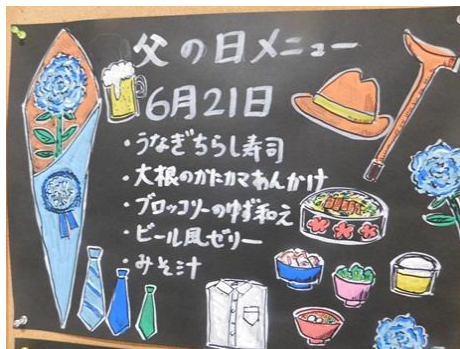 父の日メニュー
6月21日
・うなぎちらし寿司
・大根のかたカマあんかけ
・ブロッコリーのゆず和え
・ビール風ゼリー
・みそ汁